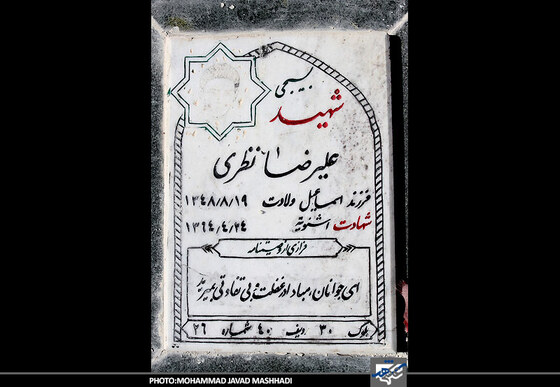 بسیجی
شهید
علیرضا نظری
فرزند اسماعیل ولادت ۱۳۴۸/۸/۱۹
شهادت اشنویه ۱۳۶۴/۴/۲۴
فرازی از وصیتنامه
ای جوانان، مبادا در غفلت و بی تفاوتی بمیرید
بلوک ۳۰ ردیف ۴۰ شماره ۲۶
PHOTO:MOHAMMAD JAVAD MASHHADI